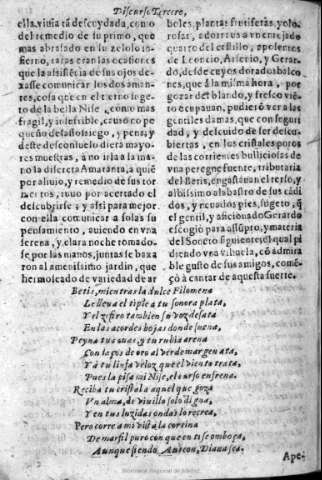 Discurso Tercero,
ella, viuia tã descuydada, como
del remedio de su primo, que
mas abrasado en su zeloso in-
fierno, raras eran las ocasiones
que la assistēcia de sus ojos de-
xasse comunicar los dos aman-
tes, cosa que en el tierno suge-
to de la bella Nise, como mas
fragil, y insufrible, causo no pe
queño desassossiego, y pena, y
deste desconsuelo diera mayo-
res muestras, a no irla a la ma-
no la discreta Amaranta, a quiē
por aliuio, y remedio de sus tor
mentos, tuuo por acertado el
descubrirse; y assi para mejor
con ella comunicar a solas su
pensamiento, auiendo en vna
serena, y clara noche tomado-
se por las manos, juntas se baxa
ron al amenissimo jardin, que
hermoseado de variedad de ar
boles, plantas frutiferas, y olo-
rosas, adornaua vn cerrado
quarto del castillo, aposentos
de Leoncio, Asterio, y Gerar-
do, desde cuyos dorados balco-
nes, que à la misma hora, por
gozar del blando, y fresco viē-
to ocupauan, pudierō ver a las
gentiles damas, que con seguri
dad, y descuido de ser descu-
biertas, en los cristales poros
de las corrientes bulliciosas de
vna peregne fuente, tributaria
del Betis, engastauan el terso, y
albissimo alabastro de sus cādi
dos, y neuados pies, sugeto, q̃
el gentil, y aficionado Gerardo
escogio para assūpto, y materia
del Soneto siguiente, el qual pi
diendo vna vihuela, cō admira
ble gusto de sus amigos, comē-
çò à cantar de aquesta suerte.
Betis, mientras la dulce Filomena
Le lleua el tiple a tu sonora plata,
Y el zifiro tambien su voz desata
En las acordes hojas donde suena,
Peyna tus ouas, y tu rubia arena
Con laços de oro al verde margen ata,
Y à tu linfa veloz que el viento trata,
Pues la pisa mi Nise, el curso enfrena.
Reciba tu cristal a aquel que goza
Vn alma, de viuillo solo digna,
Y en tus luzidas ondas lo recrea,
Pero corre a mi vista la cortina
De marfil puro con que en ti se emboça,
Aunque siendo Anteon, Diana sea.
Ape-
Biblioteca Regional de Madrid